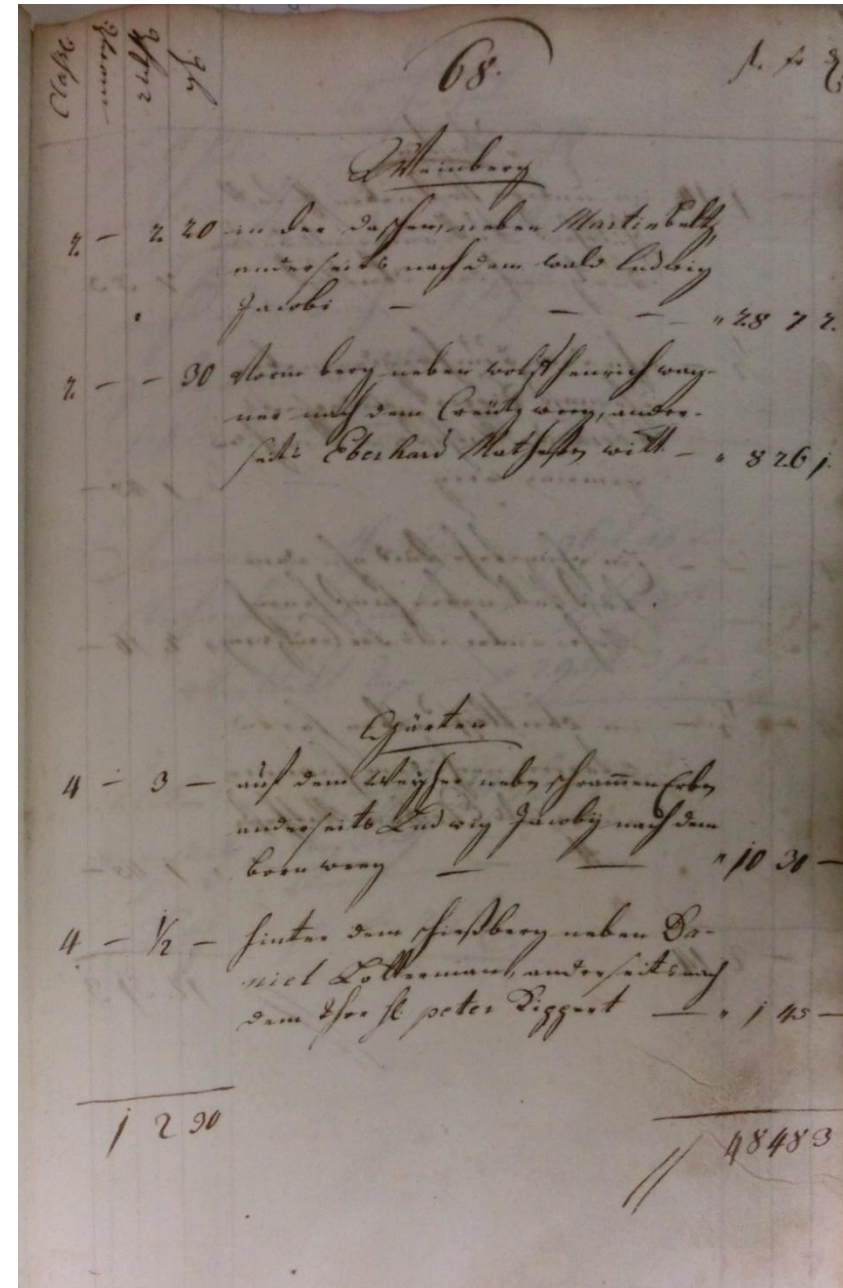 68.
Weinberg
2 – 2 20 in der daschen, neben Martin Beltz
anderseits nach dem wald Ludwig
Jacobi — — — " 28 7 2.
2 – – 30 Vorm berg neben henrich wag-
ner nach dem Creütz weeg, ander-
seits Eberhard Mathesen witt. – " 8 26 1.
Gärten
4 – 3 – auf dem Weyher neben schrammen Erben
anderseits Ludwig Jacoby nach dem
born weeg — — " 10 30 –
4 – 1/2 – hinter dem schießberg neben Da-
niel anderseits nach
dem Thor peter Dippert — " 1 45 –
1 2 30
48 48 3